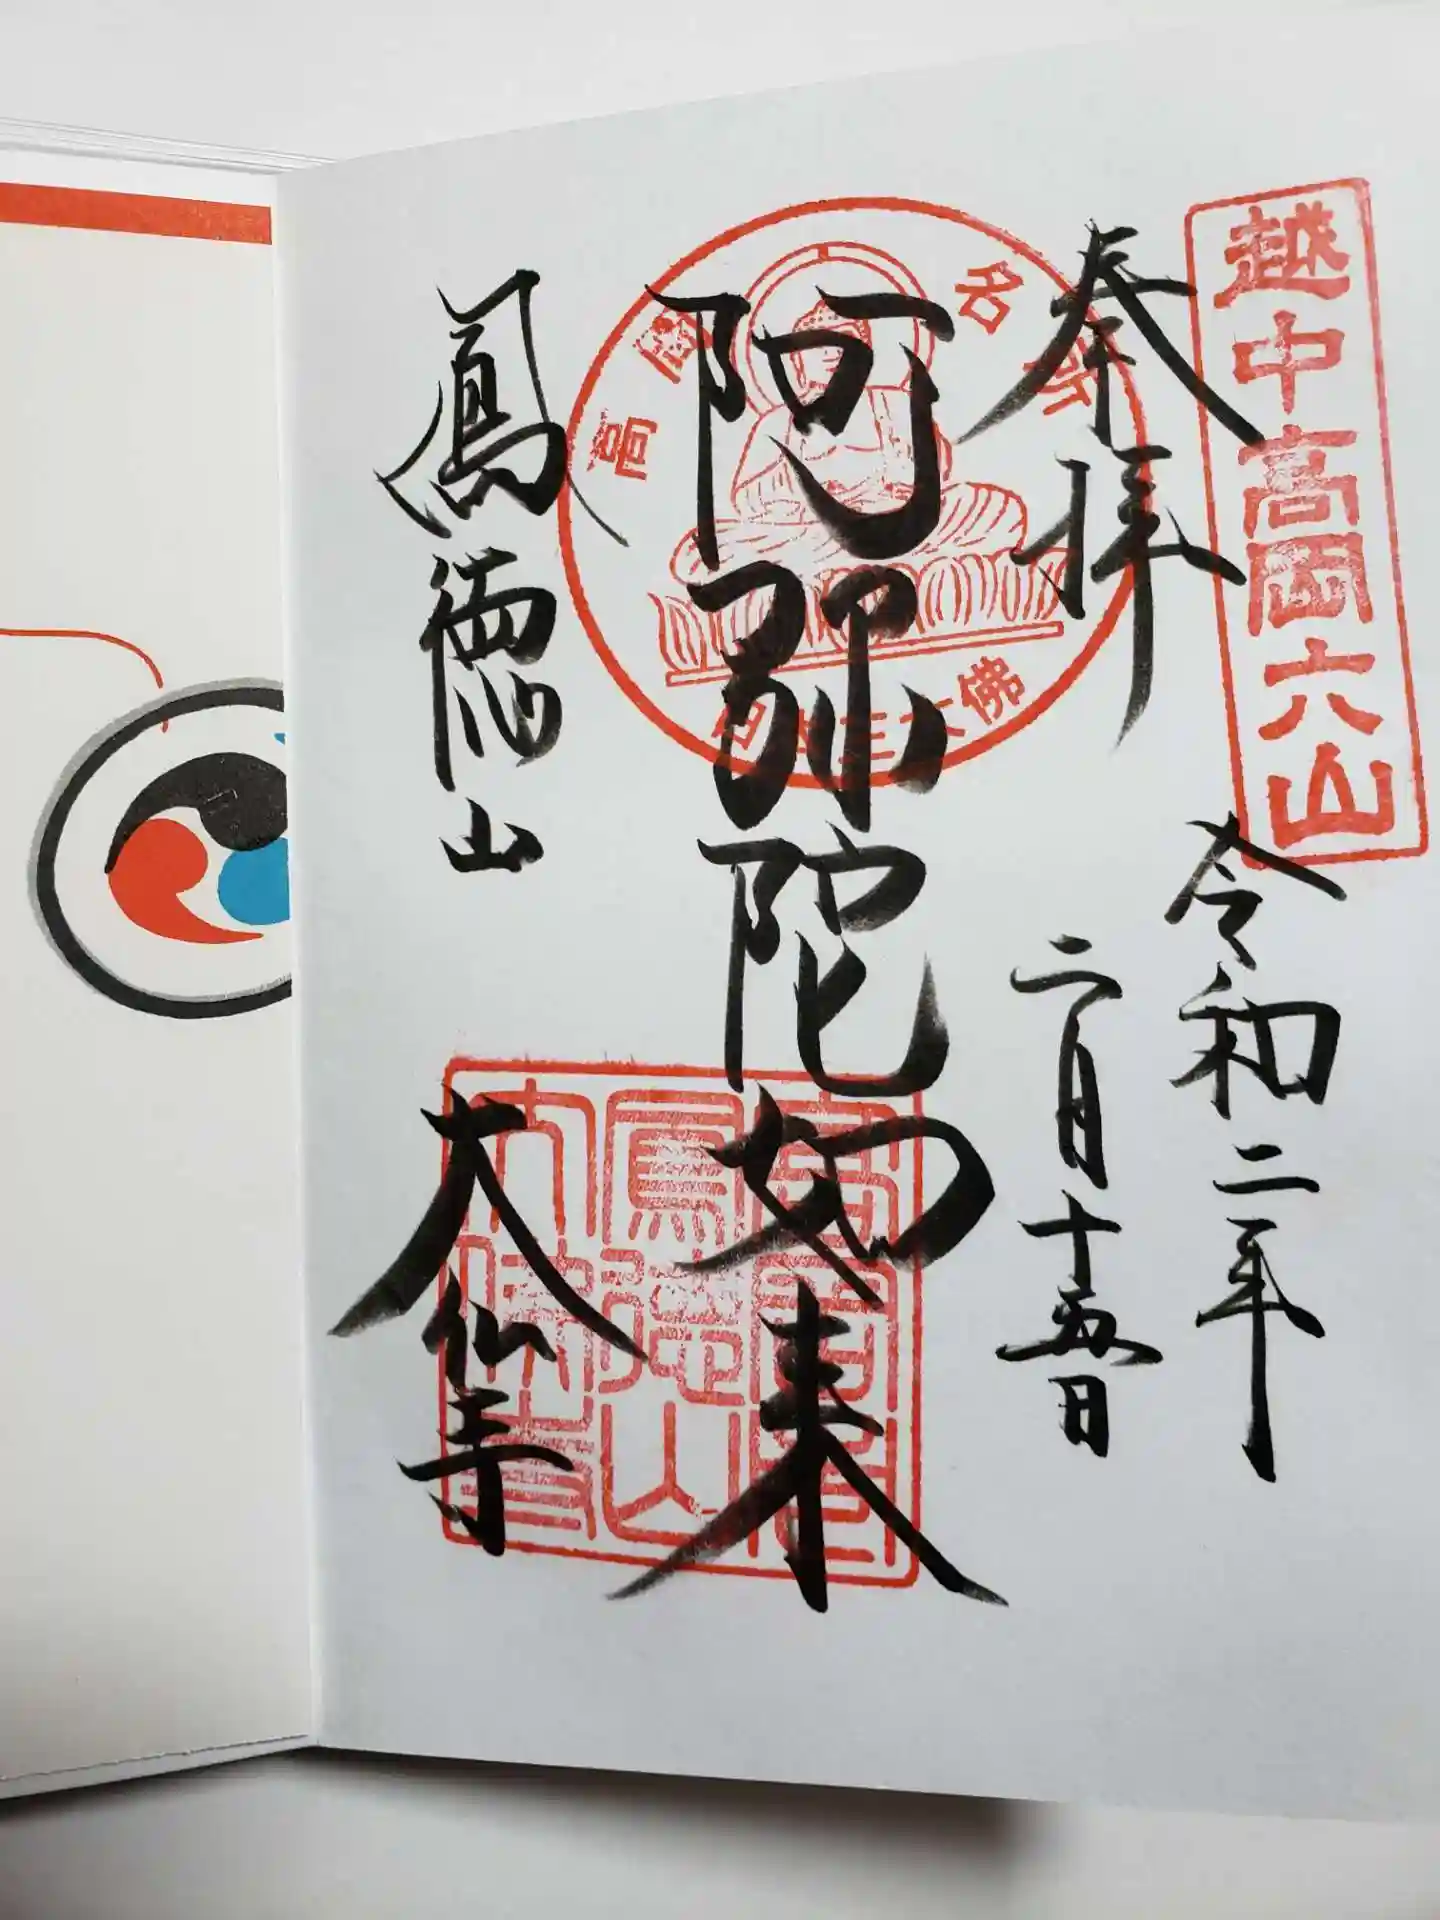 越中高岡六山
奉拝
令和二年
二月十五日
高岡名所
日本三大佛
阿弥陀如来
鳳徳山
大仏寺